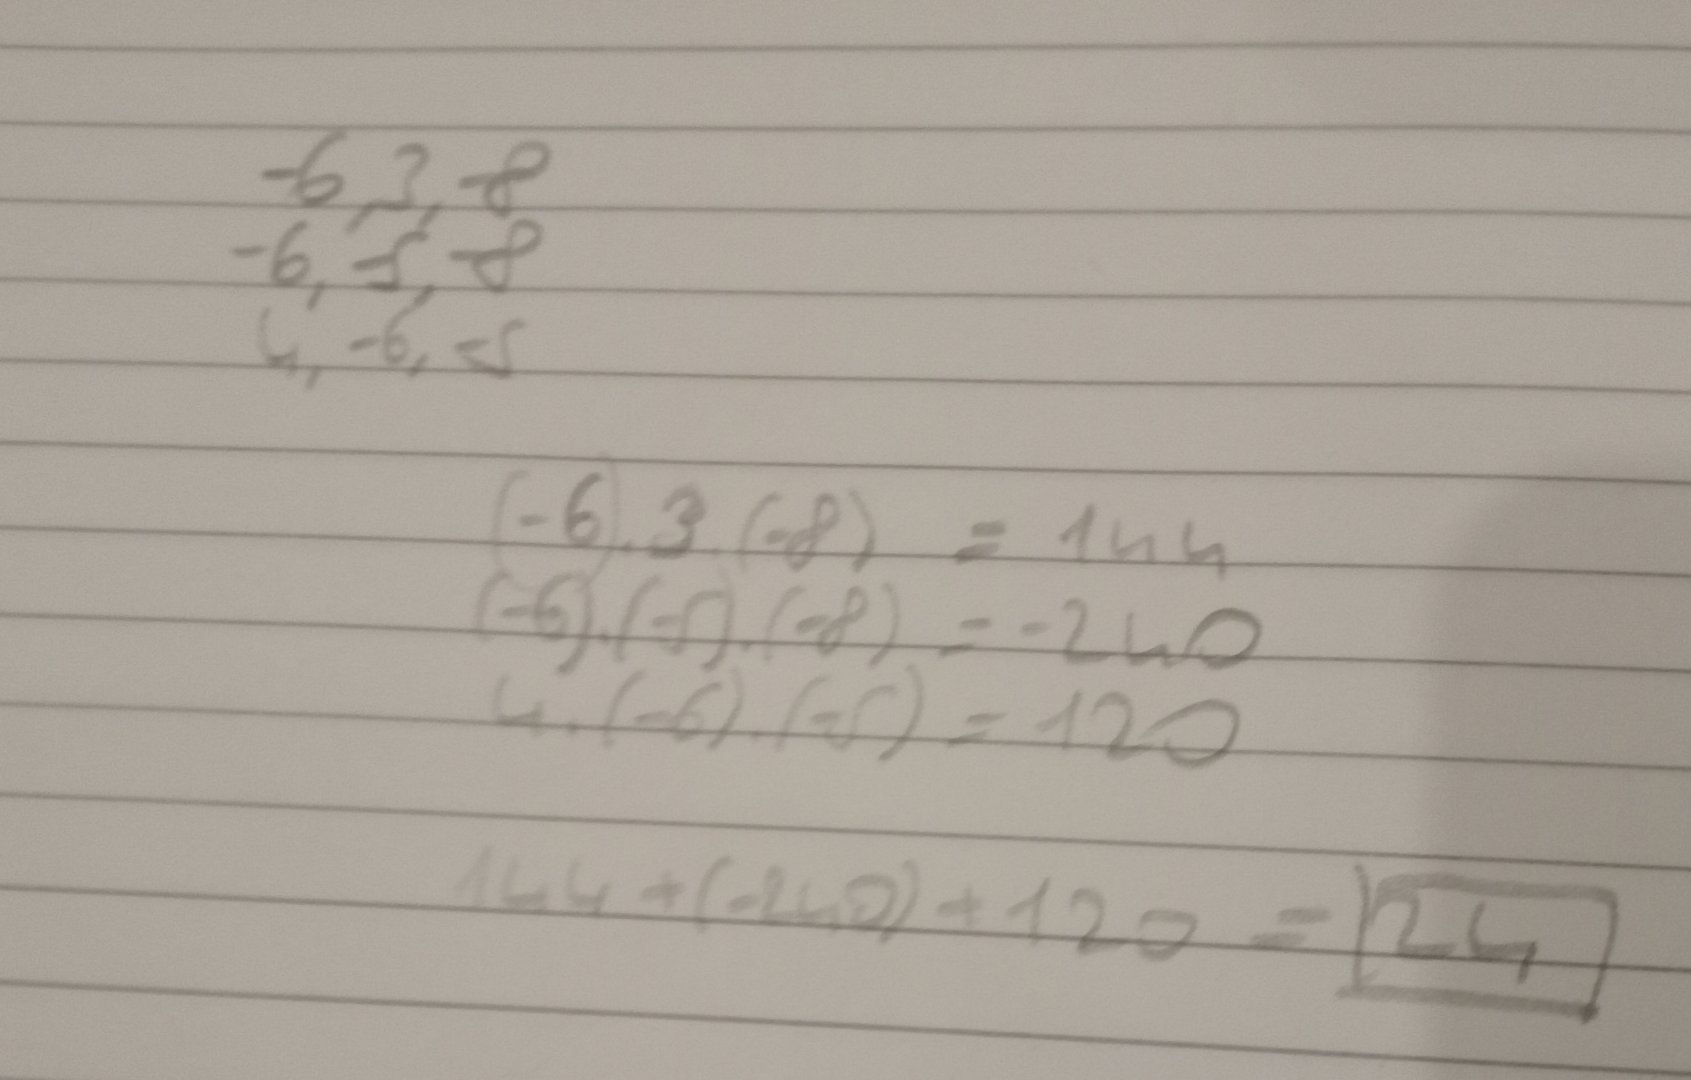 -6, 3, -8
-6, -5, -8
4, -6, -5
(-6).3.(-8) = 144
(-6).(-5).(-8) = -240
4.(-6).(-5) = 120
144 + (-240) + 120 = 24